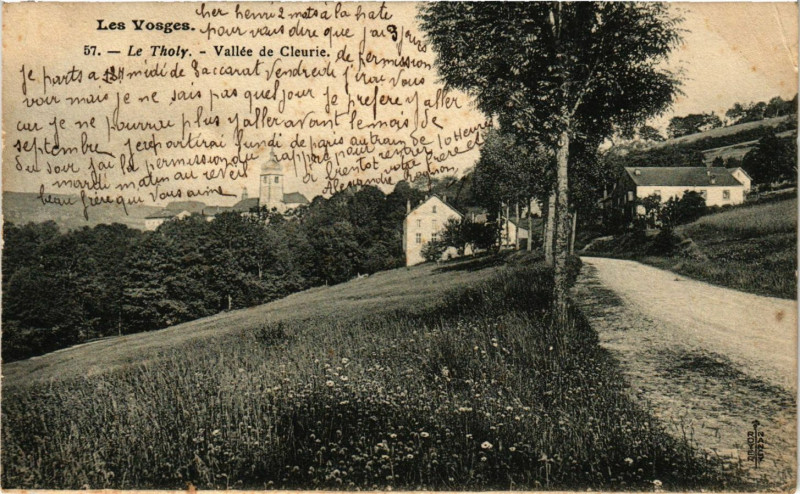 Les Vosges.
57. — Le Tholy. - Vallée de Cleurie.
cher henri 2 mots à la hate
pour vous dire que j'ai 3 jours
de permission
je parts a midi de Baccarat Vendredi j'irai vous
voir mais je ne sais pas quel jour je préfere y aller
car je ne pourrai plus y aller avant le mois de
septembre je repartirai lundi de paris au train de 10 Heures
du soir j'ai la permission du rappor pour rentrer
mardi matin au revoir à bientot votre frere et
beau frère qui vous aime Alexandre